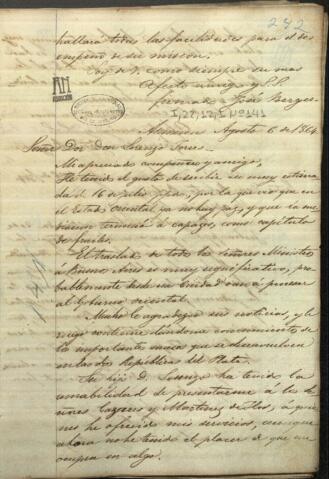 242
hallará todas las facilidades para el des
empeño de su mision.
Soy de V. como siempre su mas
afecto amigo y S. S.
firmado José Berges
I,22,12,1 Nº141
Asuncion Agosto 6 de 1864
Señor Don Lorenzo Torres
Mi apreciado compatriota y amigo,
He tenido el gusto de recibir su muy estima
da del 16 de Julio ppdo, por la que veo que en
el Estado Oriental ya no hay paz, y que la me
diacion terminó a capazos, como capítulo
de frailes.
El traslado de todos los señores Ministros
á Buenos Aires es muy significativo, pro
bablemente desde esa Ciudad van á procesar
al Gobierno oriental.
Mucho le agradezco sus noticias, y le
ruego continue dandome conocimiento de
lo importante que se desenvuelve
en las dos Repúblicas del Plata.
Su hijo D. Lorenzo ha tenido la
amabilidad de presentarme á los Se
ñores Cazeres y Martinez de Hoz, á quie
nes he ofrecido mis servicios, aunque
ahora no he tenido el placer de que me
ocupen en algo.